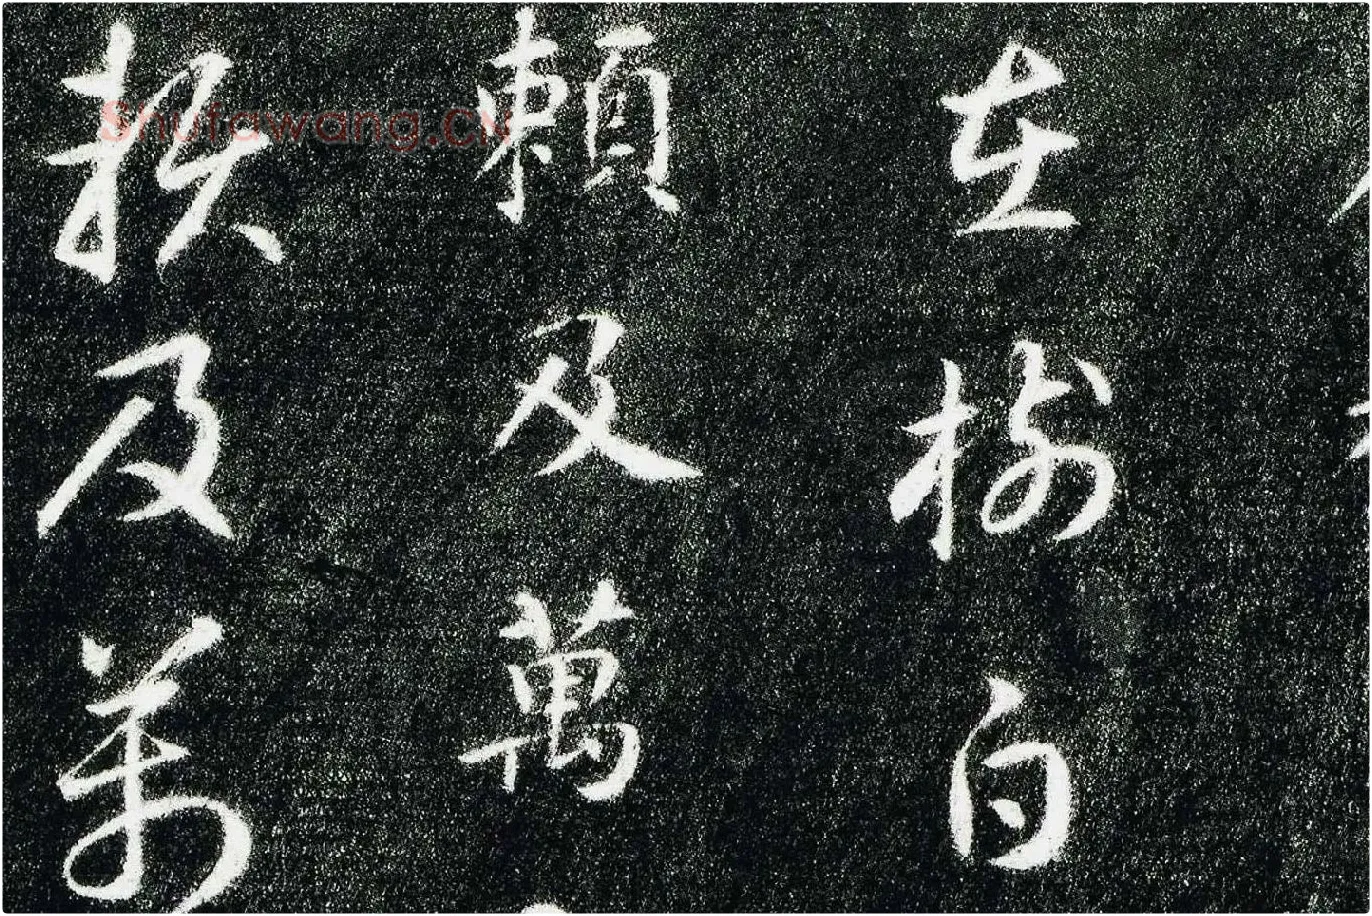 在樹白
賴及萬
賴及萬
Shufawang.cn